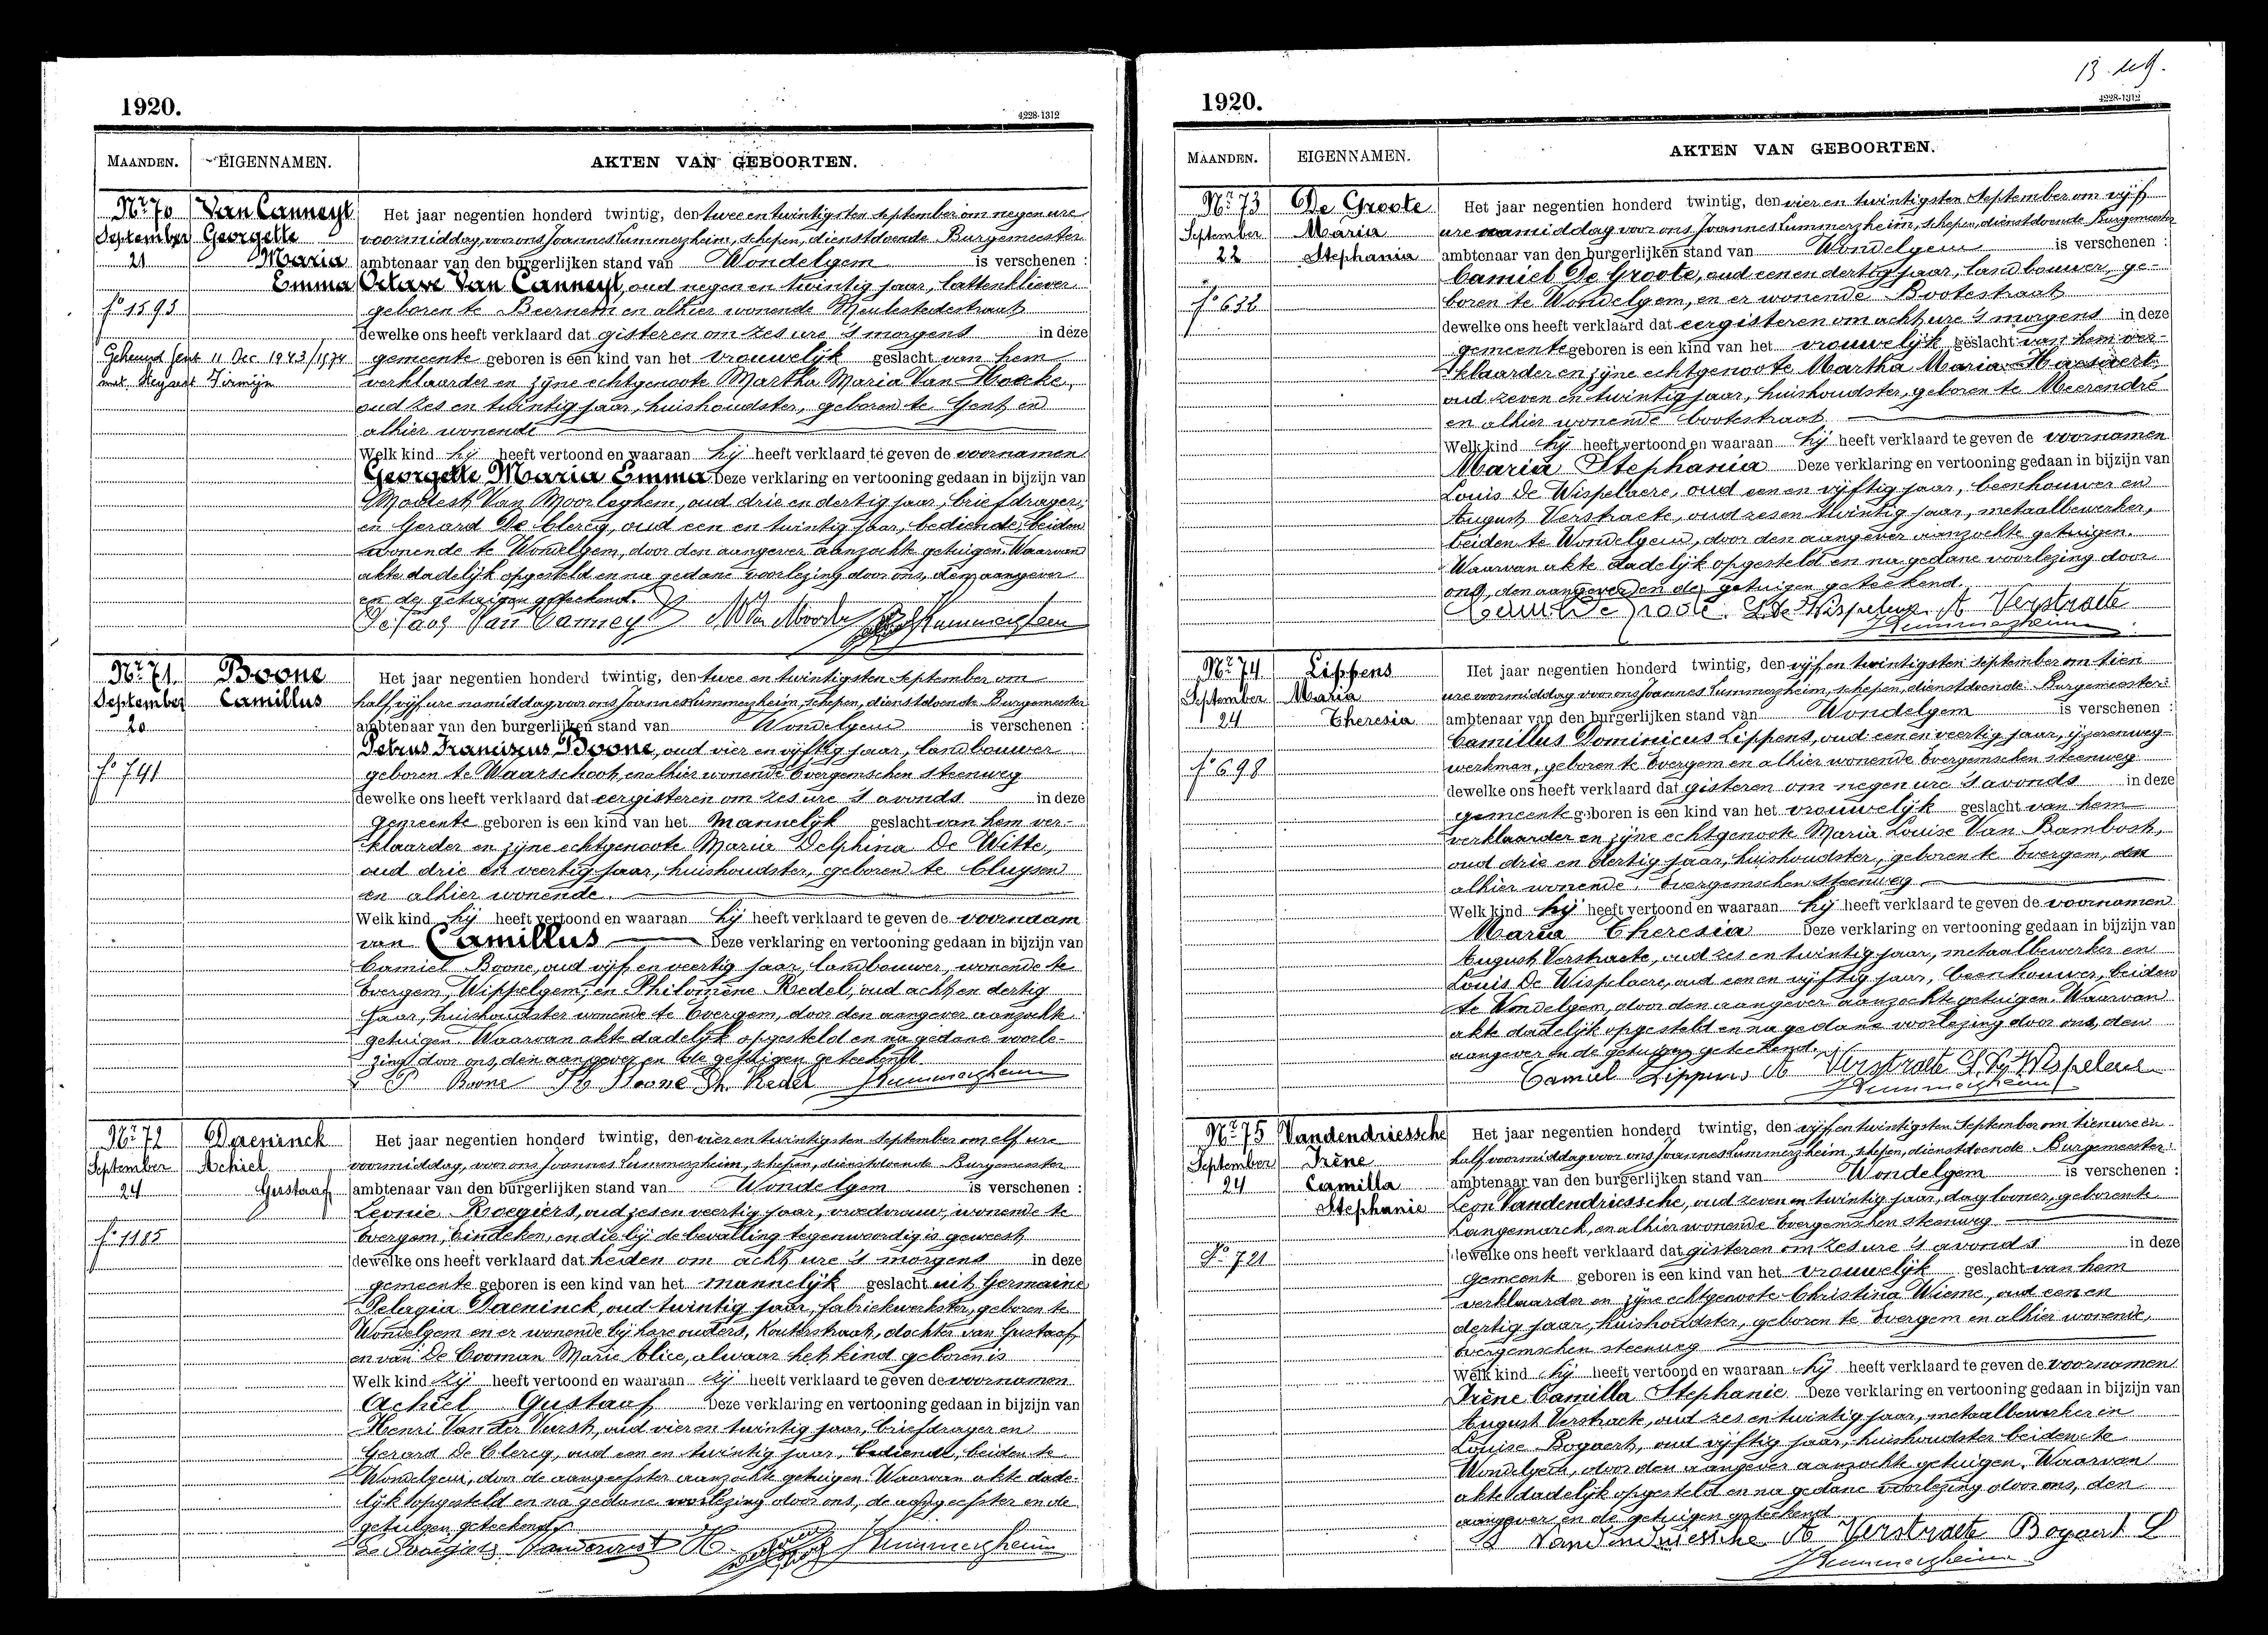 1920.
4228-1312
MAANDEN. EIGENNAMEN. AKTEN VAN GEBOORTEN.
Nr. 70 Van Canneyt Het jaar negentien honderd twintig, den twee en twintigsten september om negen ure
September Georgette voormiddag, voor ons Joannes Lummerzheim, schepen, dienstdoende Burgemeester
21 Maria ambtenaar van den burgerlijken stand van Wondelgem is verschenen :
Emma Octave Van Canneyt, oud negen en twintig jaar, lattenkliever
fo 1593 geboren te Beernem en alhier wonende Meulestedestraat
dewelke ons heeft verklaard dat gisteren om zes ure 's morgens in deze
Gehuwd Gent 11 Dec 1943/1574 gemeente geboren is een kind van het vrouwelijk geslacht van hem
met Firmijn verklaarder en zijne echtgenoote Martha Maria Van Hoake,
oud zes en twintig jaar, huishoudster, geboren te Gent en
alhier wonende
Welk kind hij heeft vertoond en waaraan hij heeft verklaard te geven de voornamen
Georgette Maria Emma Deze verklaring en vertooning gedaan in bijzijn van
Modest Van Moorleghem, oud drie en dertig jaar, briefdrager,
en Gerard De Clercq, oud een en twintig jaar, bediende, beiden
wonende te Wondelgem, door den aangever aanzochte getuigen. Waarvan
akte dadelijk opgesteld en na gedane voorlezing door ons, den aangever
en de getuigen geteekend.
Van Canneyt
Nr. 71 Boone Het jaar negentien honderd twintig, den twee en twintigsten September om
September Camillus half vijf ure namiddag, voor ons Joannes Lummerzheim, schepen, dienstdoende Burgemeester
20 ambtenaar van den burgerlijken stand van Wondelgem is verschenen :
Petrus Franciscus Boone, oud vier en vijftig jaar, landbouwer
fo 741 geboren te Waarschoot, en alhier wonende Evergemschen steenweg
dewelke ons heeft verklaard dat eergisteren om zes ure 's avonds in deze
gemeente geboren is een kind van het mannelijk geslacht van hem ver-
klaarder en zijne echtgenoote Maria Delphina De Witte,
oud drie en veertig jaar, huishoudster, geboren te Cluysen
en alhier wonende.
Welk kind hij heeft vertoond en waaraan hij heeft verklaard te geven de voornaam
van Camillus Deze verklaring en vertooning gedaan in bijzijn van
Camiel Boone, oud vijf en veertig jaar, landbouwer, wonende te
Evergem, Wippelgem, en Philomène Redel, oud acht en dertig
jaar, huishoudster wonende te Evergem, door den aangever aanzochte
getuigen. Waarvan akte dadelijk opgesteld en na gedane voorle-
zing door ons, den aangever en de getuigen geteekend
P Boone Boone Ph. Redel JLummerzheim
Nr. 72 Daeninck Het jaar negentien honderd twintig, den vier en twintigsten September om elf ure
September Achiel voormiddag, voor ons Joannes Lummerzheim, schepen, dienstdoende Burgemeester
24 Gustaaf ambtenaar van den burgerlijken stand van Wondelgem is verschenen :
Leonie Roegiers, oud zes en veertig jaar, vroedvrouw, wonende te
fo 1185 Evergem, Eindeken, en die bij de bevalling tegenwoordig is geweest
dewelke ons heeft verklaard dat heden om acht ure 's morgens in deze
gemeente geboren is een kind van het mannelijk geslacht uit Germaine
Pelagia Daeninck, oud twintig jaar, fabriekwerkster, geboren te
Wondelgem en er wonende bij hare ouders, Kouterstraat, dochter van Gustaaf
en van De Cooman Marie Alice, alwaar het kind geboren is
Welk kind zij heeft vertoond en waaraan zij heeft verklaard te geven de voornamen
Achiel Gustaaf Deze verklaring en vertooning gedaan in bijzijn van
Henri Van der Vurst, oud vier en twintig jaar, briefdrager en
Gerard De Clercq, oud een en twintig jaar, bediende, beiden te
Wondelgem, door de aangeefster aanzochte getuigen. Waarvan akte dade-
lijk opgesteld en na gedane voorlezing door ons, de aangeefster en de
getuigen geteekend
JLummerzheim
1920.
4228-1312
MAANDEN. EIGENNAMEN. AKTEN VAN GEBOORTEN.
Nr. 73 De Groote Het jaar negentien honderd twintig, den vier en twintigsten September om vijf
September Maria ure namiddag voor ons Joannes Lummerzheim, schepen, dienstdoende Burgemeester
22 Stephania ambtenaar van den burgerlijken stand van Wondelgem is verschenen :
Camiel De Groote, oud een en dertig jaar, landbouwer, ge-
fo 632 boren te Wondelgem, en er wonende Bootestraat
dewelke ons heeft verklaard dat eergisteren om acht ure 's morgens in deze
gemeente geboren is een kind van het vrouwelijk geslacht van hem ver-
klaarder en zijne echtgenoote Martha Maria
oud zeven en twintig jaar, huishoudster, geboren te Meerendré
en alhier wonende bootestraat
Welk kind hij heeft vertoond en waaraan hij heeft verklaard te geven de voornamen
Maria Stephania Deze verklaring en vertooning gedaan in bijzijn van
Louis De Wispelaere, oud een en vijftig jaar, beenhouwer en
August Verstraete, oud zes en twintig jaar, metaalbewerker,
beiden te Wondelgem, door den aangever aanzochte getuigen.
Waarvan akte dadelijk opgesteld en na gedane voorlezing door
ons, den aangever en de getuigen geteekend.
A Verstraete
JLummerzheim
Nr. 74 Lippens Het jaar negentien honderd twintig, den vijf en twintigsten september om tien
September Maria ure voormiddag voor ons Joannes Lummerzheim, schepen, dienstdoende Burgemeester
24 Theresia ambtenaar van den burgerlijken stand van Wondelgem is verschenen :
Camillus Dominicus Lippens, oud een en veertig jaar, ijzerenweg-
fo 698 werkman, geboren te Evergem en alhier wonende Evergemschen steenweg
dewelke ons heeft verklaard dat gisteren om negen ure 's avonds in deze
gemeente geboren is een kind van het vrouwelijk geslacht van hem
verklaarder en zijne echtgenoote Maria Louise Van Bambost,
oud drie en dertig jaar, huishoudster, geboren te Evergem, en
alhier wonende, Evergemschen steenweg
Welk kind hij heeft vertoond en waaraan hij heeft verklaard te geven de voornamen
Maria Theresia Deze verklaring en vertooning gedaan in bijzijn van
August Verstraete, oud zes en twintig jaar, metaalbewerker en
Louis De Wispelaere, oud een en vijftig jaar, beenhouwer, beiden
te Wondelgem, door den aangever aanzochte getuigen. Waarvan
akte dadelijk opgesteld en na gedane voorlezing door ons, den
aangever en de getuigen geteekend.
Camiel Lippens A Verstraete
JLummerzheim
Nr. 75 Vandendriessche Het jaar negentien honderd twintig, den vijf en twintigsten September om tien ure en
September Irène half voormiddag voor ons Joannes Lummerzheim, schepen, dienstdoende Burgemeester
24 Camilla ambtenaar van den burgerlijken stand van Wondelgem is verschenen :
Stephanie Leon Vandendriessche, oud zeven en twintig jaar, daglooner, geboren te
Langemarck, en alhier wonende Evergemschen steenweg
fo 721 dewelke ons heeft verklaard dat gisteren om zes ure 's avonds in deze
gemeente geboren is een kind van het vrouwelijk geslacht van hem
verklaarder en zijne echtgenoote Christina Wieme, oud een en
dertig jaar, huishoudster, geboren te Evergem en alhier wonende,
Evergemschen steenweg
Welk kind hij heeft vertoond en waaraan hij heeft verklaard te geven de voornamen
Irène Camilla Stephanie Deze verklaring en vertooning gedaan in bijzijn van
August Verstraete, oud zes en twintig jaar, metaalbewerker en
Louise Bogaert, oud vijftig jaar, huishoudster beiden te
Wondelgem, door den aangever aanzochte getuigen. Waarvan
akte dadelijk opgesteld en na gedane voorlezing door ons, den
aangever en de getuigen geteekend
Vandendriessche A Verstraete Bogaert L
JLummerzheim